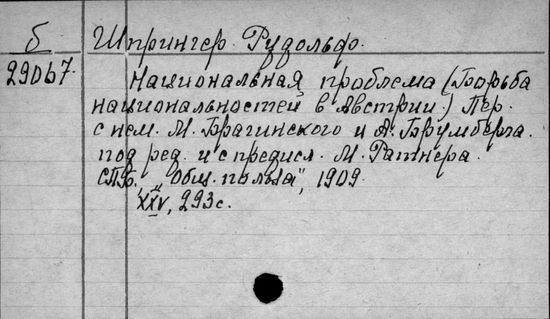 б
Шпрингер Рудольф.
29067.
Национальная проблема (Борьба
национальностей в Австрии.) Пер.
с нем. М. Брагинского и А. Брумберга.
под ред. и с предисл. М. Ратнера.
СПБ, "Общ. польза", 1909.
XIV, 293с.